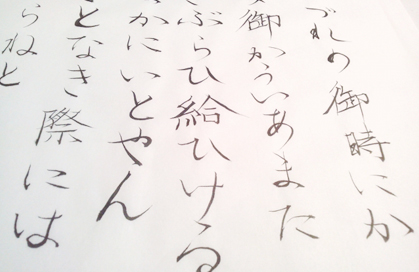 づれの御時にか
御かういあまた
ぶらひ給ひける
かにいとやん
となき際には
らねと